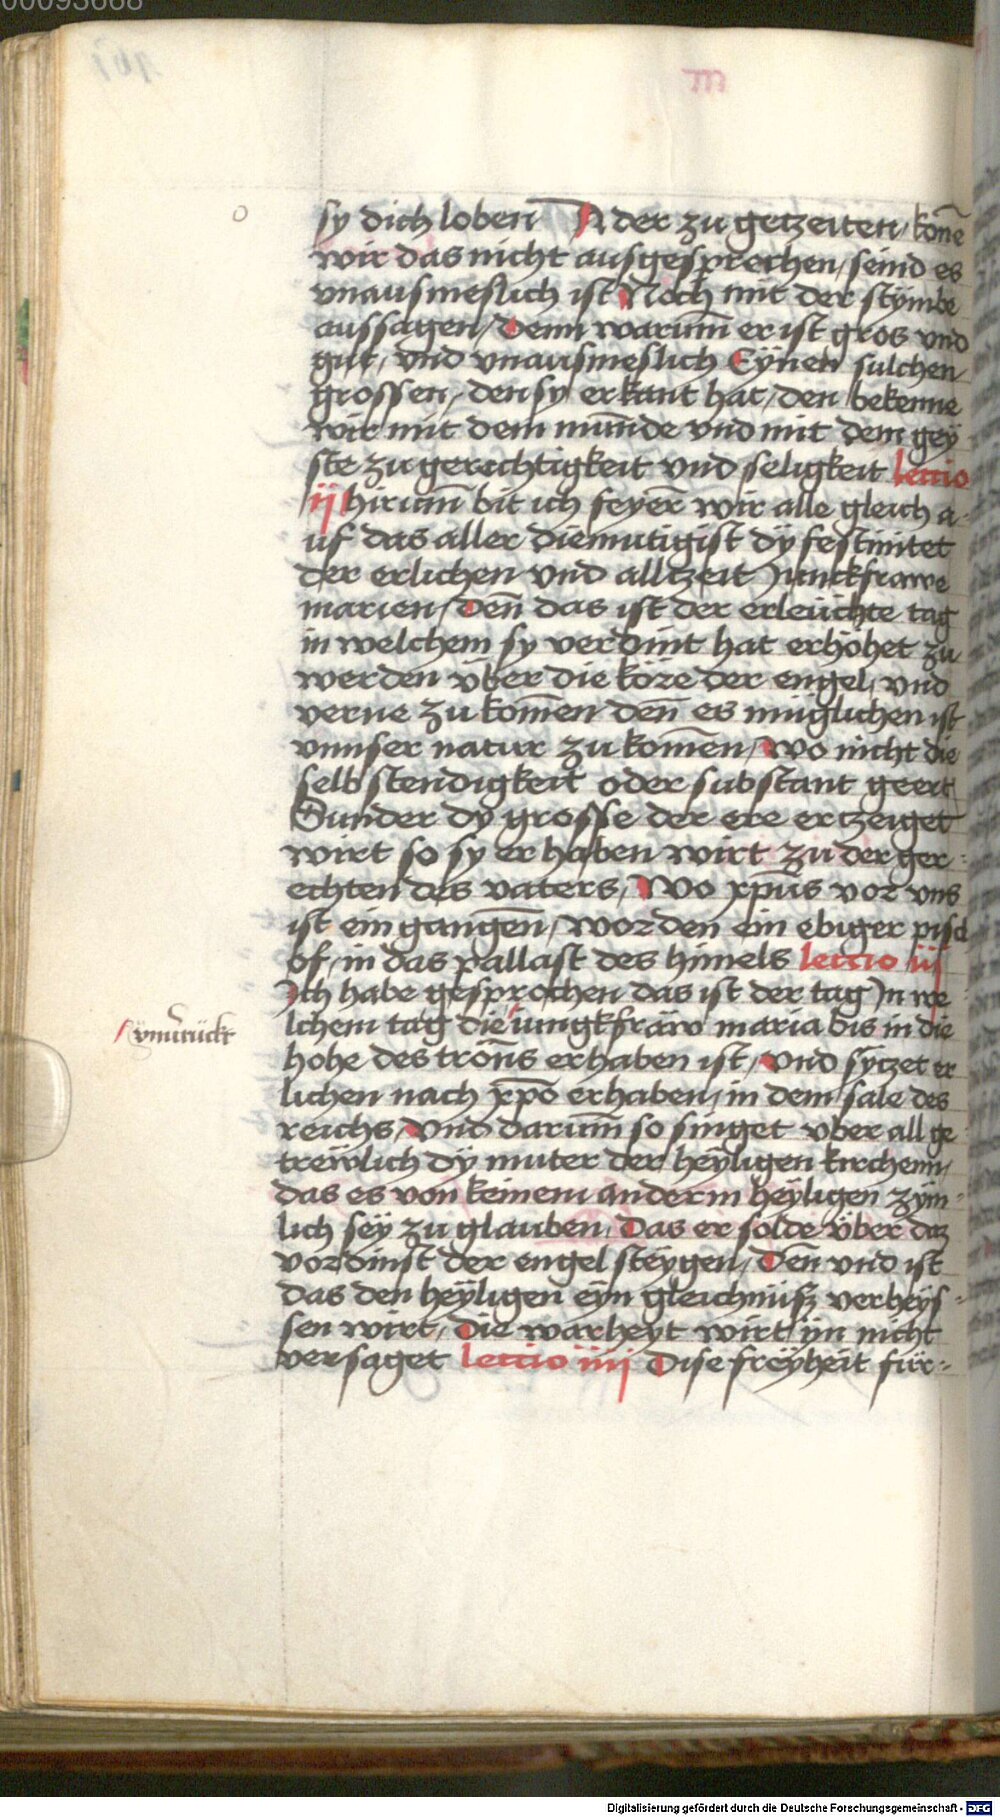 sy dich loben Ader zu getzeiten / kone̅
wir das nicht ausgesprechen / seind es
vnausmeslich ist Noch mit der stÿmbe
aussagen / Denn waru̅m er ist gros vnd
gut / vnd vnausmeslich Eÿnen sulchen
grossen / den sy erkant hat / den bekenne
wir mit dem mu̅nde vnd mit dem geÿ
ste zu gerechtigkeit vnd seligkeit lectio
ij hiru̅m bit ich feyer̅ wir alle gleich a-
uf das aller diemutigist dÿ festiuitet
der erlichen vnd alltzeit Junckfrawe
marien / Den̅ das ist der erleuchte tag
in welchem sy verdint hat erhöhet zu
werden über die köre der engel / vnd
verne zu kom̅en den̅ es müglichen ist
vnnser natur zu kom̅en / Wo nicht die
selbstendigkeit oder substant geert
Sunder dy grosse der ere ertzeiget
wirt so sy erhaben wirt zu der ger-
echten des vaters / Wo xpu̅s vor vns
ist ein gangen̅ / worden ein ebiger pisch
of / in das pallast des himels lectio iij
Ich habe gesprochen das ist der tag Jn we
lchem tag die iungkfraw maria bis in die
ÿnuerückt
hohe des tron̅s erhaben ist / vnd sÿtzet er
lichen nach xp̅o erhaben / in dem sale des
reichs / vnd daru̅m so singet vber all ge
trewlich dÿ muter der heÿligen kirchenn /
das es von keinem anderm heÿligen zÿm-
lich seÿ zu glauben / Das er solde über daz
vordinst der engel steÿgen / Den̅ vnd ist
das den heÿligen eÿn gleichnüsz verheÿs-
sen wirt / Die warheyt wirt ÿn nicht
versaget lectio iiij Dise freÿheit für-